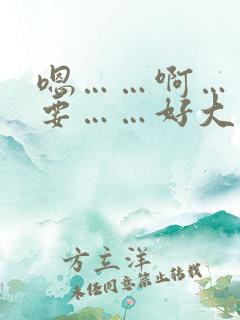 嗯……啊…
要……好大
方立洋
未经同意禁止转载